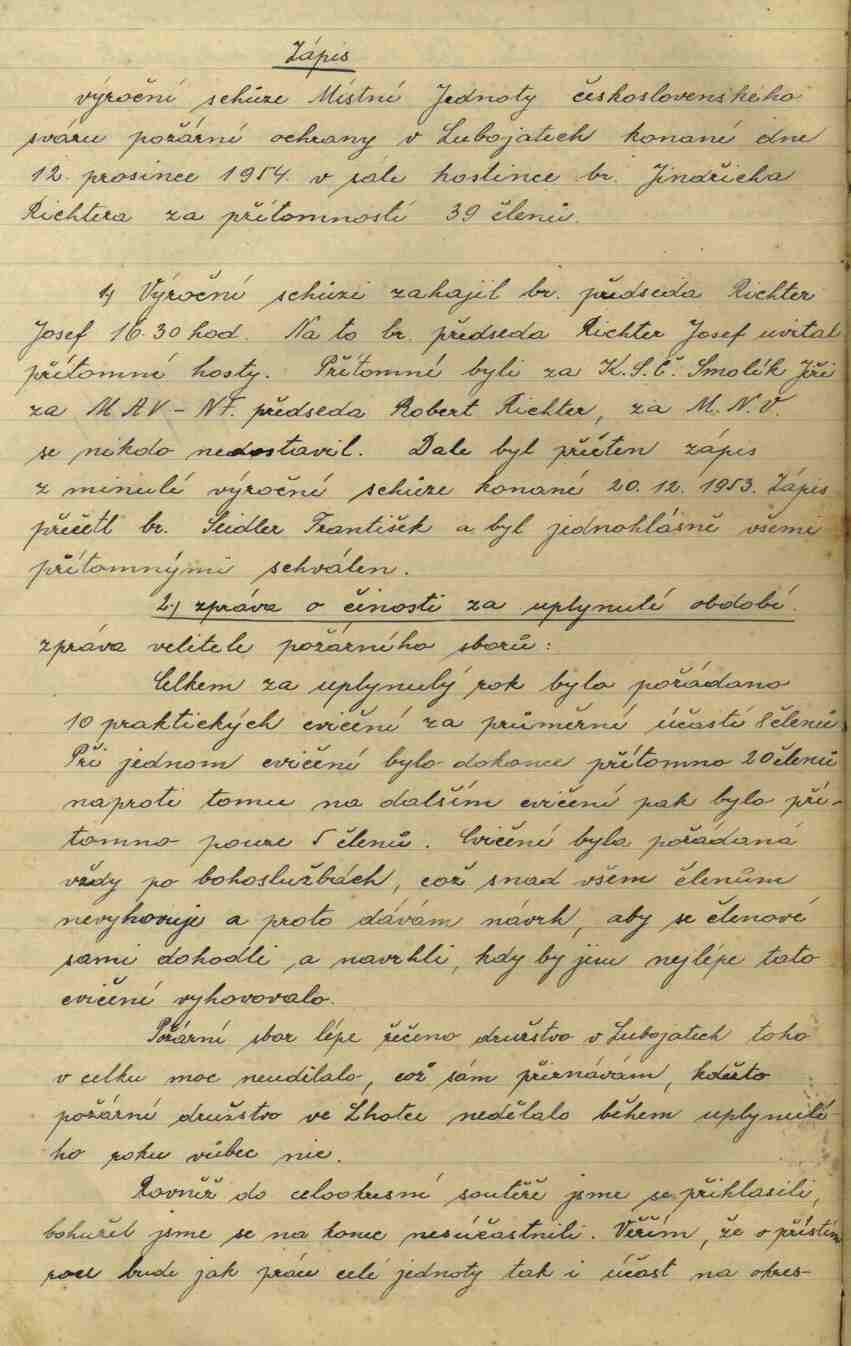 Zápis
výroční schůze Místní Jednoty československého
svazu požární ochrany v Lubojatech konané dne
12. prosince 1954 v sále hostince br. Jindřicha
Richtera za přítomnosti 39 členů.
1) Výroční schůzi zahajil br. předseda Richter
Josef 16.30 hod. Na to br. předseda Richter Josef uvital
přítomné hosty. Přítomné byli za K.S.Č. Smolík Jiří
za MAV – NF. předseda Robert Richter, za M.N.V.
se nikdo nedostavil. Dale byl přečten zápis
z minulé výroční schůze konané 20.12.1953. Zápis
přečetl br. Seidler František a byl jednohlásně všemi
přítomnými schválen.
2.) zpráva o činosti za uplynulé období.
zpráva velitele požárního sborů:
Celkem za uplynulý rok bylo pořádano
10 praktických cvičení za průměrné účastí 8 členů.
Při jednom cvičení bylo dokonce přítomno 20 členů
naproti tomu na dalším cvičení pak bylo pří-
tomno pouze 5 členů. Cvičení byla pořádaná
vždy po bohoslužbách, což snad všem členům
nevyhovuje a proto dávám návrh, aby se členové
sami dohodli a navrhli, kdy by jim nejlépe tato
cvičení vyhovovalo.
Požární sbor lépe řečeno družstvo v Lubojatech toho
v celku moc neudělalo, což sám přiznávám, kdežto
požární družstvo ve Lhotce nedělalo během uplynulé-
ho roku vůbec nic.
Rovněž do celookresní soutěže jsme se přihlasili,
bohužel jsme se na konec nesúčastnili. Věřím, že v příštím
roce bude jak práce celé jednoty tak i účast na okres-